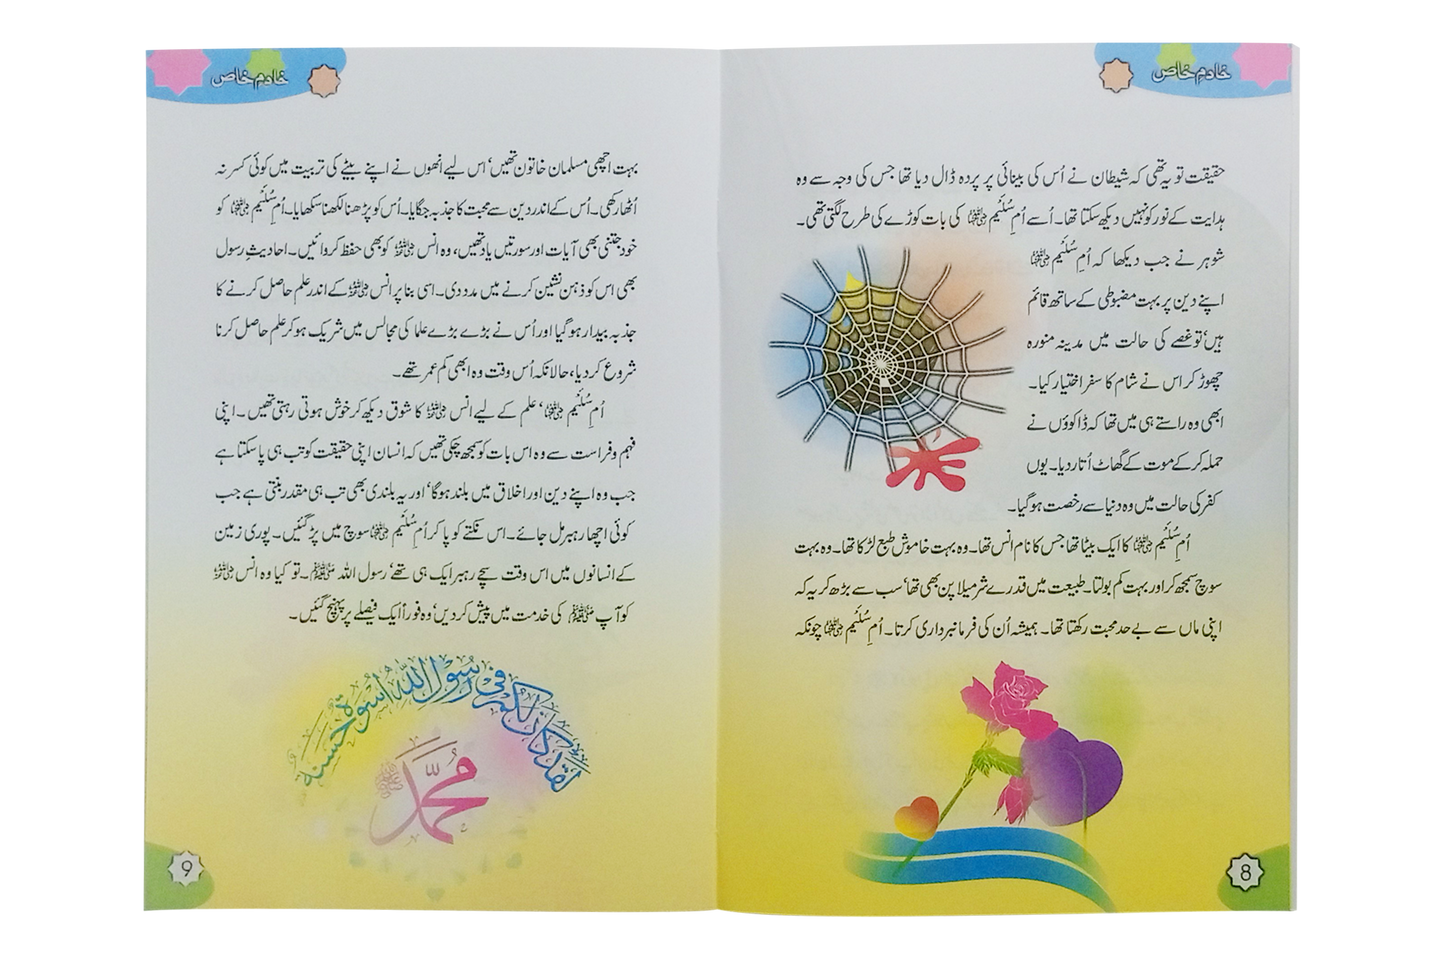 خادمِ خاص
حقیقت تو یہ تھی کہ شیطان نے اُس کی بینائی پر پردہ ڈال دیا تھا جس کی وجہ سے وہ
ہدایت کے نور کو نہیں دیکھ سکتا تھا۔ اُسے اُم سُلَیم رضی اللہ عنہا کی بات کوڑے کی طرح لگتی تھی۔
شوہر نے جب دیکھا کہ اُم سُلَیم رضی اللہ عنہا
اپنے دین پر بہت مضبوطی کے ساتھ قائم
ہیں‘ تو غصے کی حالت میں مدینہ منورہ
چھوڑ کر اس نے شام کا سفر اختیار کیا۔
ابھی وہ راستے ہی میں تھا کہ ڈاکوؤں نے
حملہ کر کے موت کے گھاٹ اُتار دیا۔ یوں
کفر کی حالت میں وہ دنیا سے رخصت ہو گیا۔
اُم سُلَیم رضی اللہ عنہا کا ایک بیٹا تھا جس کا نام انس تھا۔ وہ بہت خاموش طبع لڑکا تھا۔ وہ بہت
سوچ سمجھ کر اور بہت کم بولتا۔ طبیعت میں قدرے شرمیلا پن بھی تھا‘ سب سے بڑھ کر یہ کہ
اپنی ماں سے بے حد محبت رکھتا تھا۔ ہمیشہ اُن کی فرمانبرداری کرتا۔ اُم سُلَیم رضی اللہ عنہا چونکہ
8
خادمِ خاص
بہت اچھی مسلمان خاتون تھیں‘ اس لیے انھوں نے اپنے بیٹے کی تربیت میں کوئی کسر نہ
اُٹھا رکھی۔ اُس کے اندر دین سے محبت کا جذبہ جگایا۔ اُس کو پڑھنا لکھنا سکھایا۔ اُم سُلَیم رضی اللہ عنہا کو
خود جتنی بھی آیات اور سورتیں یاد تھیں، وہ انس رضی اللہ عنہ کو بھی حفظ کروائیں۔ احادیثِ رسول
بھی اس کو ذہن نشین کرنے میں مدد دی۔ اسی بنا پر انس رضی اللہ عنہ کے اندر علم حاصل کرنے کا
جذبہ بیدار ہو گیا اور اُس نے بڑے بڑے علما کی مجالس میں شریک ہو کر علم حاصل کرنا
شروع کر دیا، حالانکہ اُس وقت وہ ابھی کم عمر تھے۔
اُم سُلَیم رضی اللہ عنہا‘ علم کے لیے انس رضی اللہ عنہ کا شوق دیکھ کر خوش ہوتی رہتی تھیں۔ اپنی
فہم و فراست سے وہ اس بات کو سمجھ چکی تھیں کہ انسان اپنی حقیقت کو تب ہی پا سکتا ہے
جب وہ اپنے دین اور اخلاق میں بلند ہوگا‘ اور یہ بلندی بھی تب ہی مقدر بنتی ہے جب
کوئی اچھا رہبر مل جائے۔ اس نکتے کو پا کر اُم سُلَیم رضی اللہ عنہا سوچ میں پڑ گئیں۔ پوری زمین
کے انسانوں میں اس وقت سچے رہبر ایک ہی تھے‘ رسول اللہ ﷺ۔ تو کیا وہ انس رضی اللہ عنہ
کو آپ ﷺ کی خدمت میں پیش کر دیں‘ وہ فوراً ایک فیصلے پر پہنچ گئیں۔
لقد كان لكم في رسول الله أسوة حسنة
محمد
9